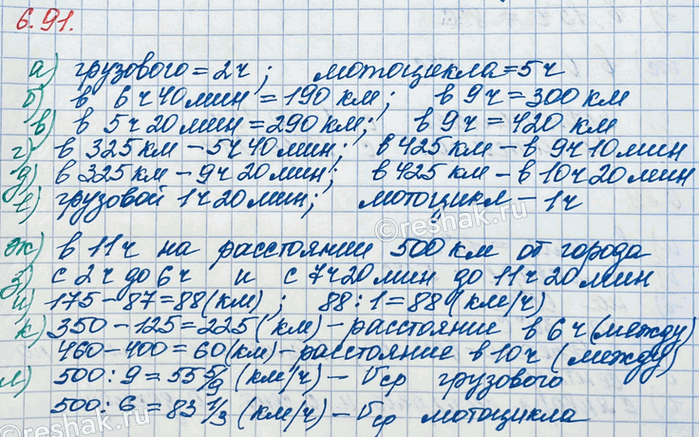 6.91.
а) грузового = 2ч; мотоцикла = 5ч
б) в 6ч 40мин = 190 км; в 9ч = 300 км
в) в 5ч 20мин = 290 км; в 9ч = 420 км
г) в 325 км – 5ч 40мин; в 425 км – в 9ч 10мин
д) в 325 км – 9ч 20мин; в 425 км – в 10ч 20мин
е) грузовой 1ч 20мин; мотоцикл – 1ч
ж) в 11ч на расстоянии 500 км от города
з) с 2ч до 6ч и с 7ч 20мин до 11ч 20мин
и) 175 – 87 = 88 (км); 88 : 1 = 88 (км/ч)
к) 350 – 125 = 225 (км) – расстояние в 6ч (между)
460 – 400 = 60 (км) – расстояние в 10ч (между)
л) 500 : 9 = 55 5/9 (км/ч) – Vср грузового
500 : 6 = 83 1/3 (км/ч) – Vср мотоцикла
©reshak.ru